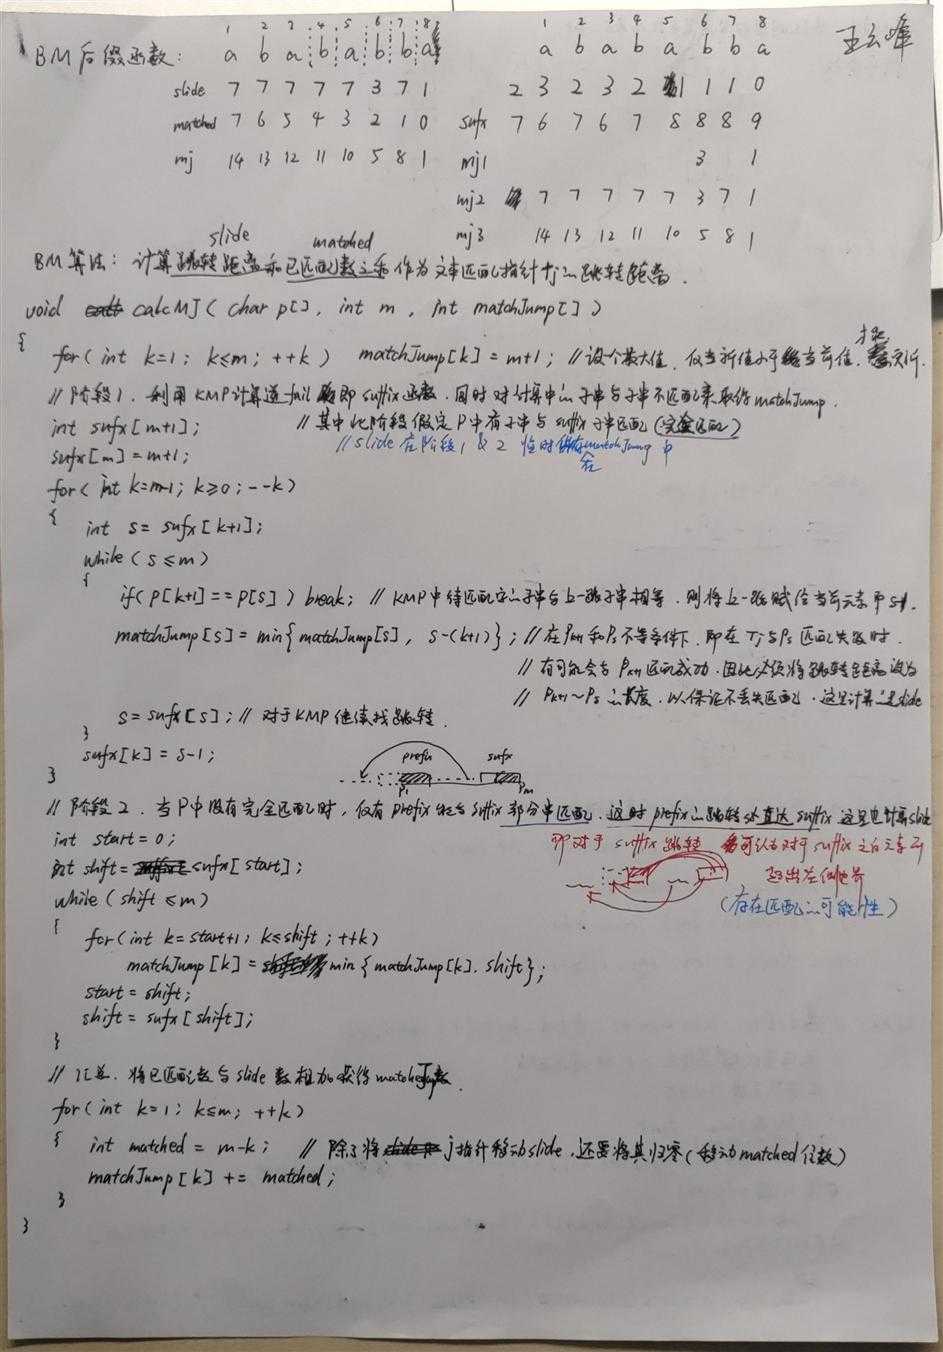 1 2 3 4 5 6 7 8
BM后缀函数: a b a b a b b a
slide 7 7 7 7 7 3 7 1
matched 7 6 5 4 3 2 1 0
mj 14 13 12 11 10 5 8 1
1 2 3 4 5 6 7 8
a b a b a b b a
王云峰
2 3 2 3 2 1 1 1 0
sufx 7 6 7 6 7 8 8 8 9
mj1 3 1
mj2 7 7 7 7 7 3 7 1
mj3 14 13 12 11 10 5 8 1
slide matched
BM算法: 计算跳转距离和已匹配数之和作为文本匹配指针tj的跳转距离.
void calcMJ( char p[], int m, int matchJump[] )
{
for( int k=1; k≤m; ++k ) matchJump[k] = m+1; //设个最大值, 仅当新值小于当前值, 才
// 阶段1. 利用KMP计算 fail 即 suffix函数. 同时对计算中的子串与子串不匹配来取得matchJump.
int sufx[m+1]; // 其中此阶段假定P中有子串与suffix子串匹配(完全匹配)
// slide 在阶段1 & 2 临时存在matchJump中
sufx[m] = m+1;
for( int k=m-1; k≥0; --k)
{
int s = sufx[k+1];
while( s ≤ m)
{
if( p[k+1] == p[s] ) break; // KMP中待匹配 子串与上一跳子串相等, 则将上一跳赋给当前元素即s-1.
matchJump[s] = min{ matchJump[s], s-(k+1) }; // 在Pk+1和Ps不等条件下, 即在Tj与Ps匹配失败时.
// 有可能会与Pk+1匹配成功. 因此必须将跳转距离设为
// Pk+1~Ps的长度, 以保证不丢失匹配. 这里计算的是slide
s = sufx[s]; // 对于KMP继续找跳转.
}
sufx[k] = s-1;
}
prefix sufx
P1 Pm
// 阶段2. 当P中没有完全匹配时, 仅有prefix能与suffix部分串匹配. 这时prefix的跳转 直达suffix 这里也计算slide
int start = 0;
int shift = sufx[start];
即对于 suffix 跳转 可认为对于suffix之后元素
超出左侧边界
(存在匹配的可能性)
while( shift ≤ m)
{
for( int k=start+1; k≤shift; ++k)
matchJump[k] = min{ matchJump[k], shift};
start = shift;
shift = sufx[shift];
}
// 汇总. 将已匹配数与slide数相加获得matchJump.
for( int k=1; k≤m; ++k)
{
int matched = m-k; // 除了将 j指针移动slide, 还要将其归零(移动matched位数)
matchJump[k] += matched;
}
}